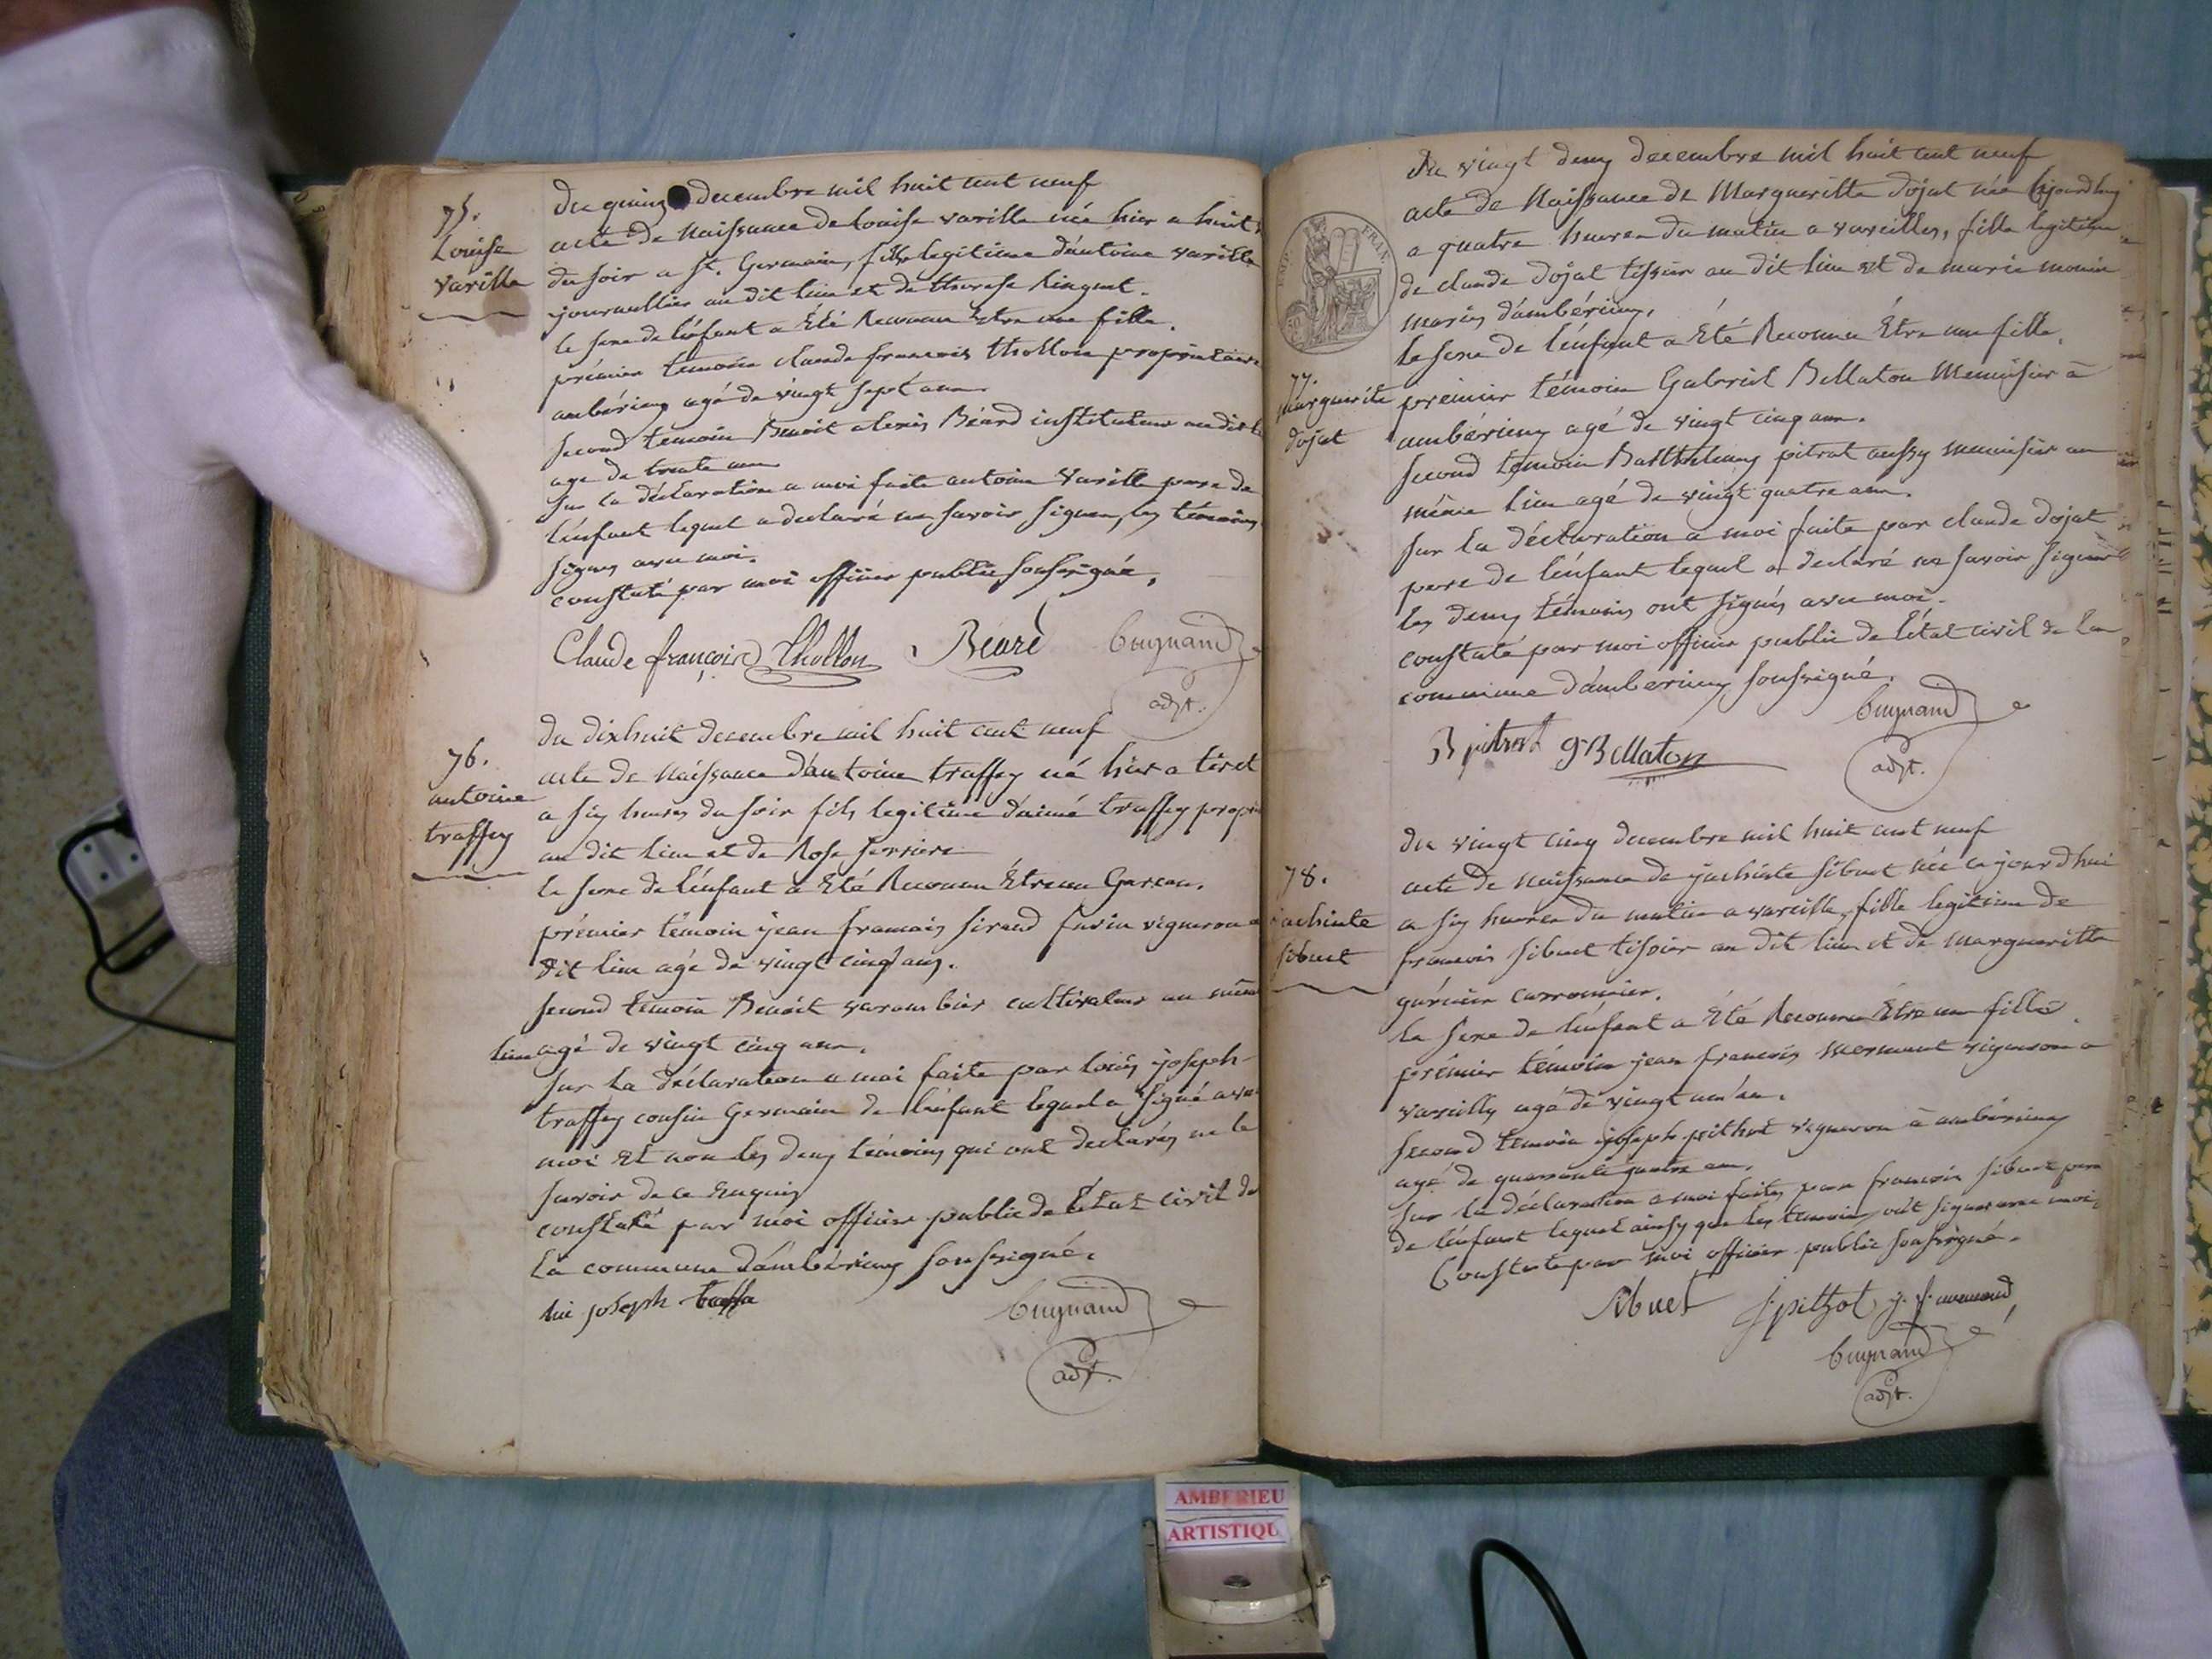 75.
Louise
varille
du quinz decembre mil huit cent neuf
acte de Naissance de Louise varille née hier a huit
du soir a St. Germain, fille legitime d'antoine varille
journallier au dit lieu et de therese
le sexe de l'énfant a Été Reconnu Estre une fille.
prémier temoin claude francois thollon propriétaire
ambérieux agé de vingt sept ans.
second temoin Benoit alexis Béard instituteur au dit
age de trente ans
sur la déclaration a moi faite antoine varille pere de
l'énfant lequel a declaré ne savoir signer, les témoins
signes avec moi.
constaté par moi officier public soussigné.
Claude françois Thollon Béard Cuynand
adjt.
76.
antoine
traffey
du dixhuit decembre mil huit cent neuf
acte de Naissance d'antoine traffey né hier a tiret
a six heures du soir fils legitime d'aimé traffey propri
au dit lieu et de Rose
le sexe de l'énfant a Eté Reconnu Étre un Garcon.
prémier témoin jean francois sirand vigneron a
dit lieu agé de vingt cinq ans.
second temoin Benoit varambier cultivateur au mème
lieu agé de vingt cinq ans.
sur la déclaration a moi faite par louis joseph
traffey cousin Germain de l'énfant lequel a signé avec
moi Et non les deux témoins qui ont declarés ne le
savoir de ce Enquis
constaté par moi officier public de l'État civil de
la commune d'ambérieux soussigné.
lui joseph traffe Cuynand
adjt.
EMP. FRAN.
77.
Marguerite
dojat
du vingt deux decembre mil huit cent neuf
acte de Naissance de Margueritte dojat née cejourdhuy
a quatre heures du matin a vareilles, fille legitime
de claude dojat tissier au dit lieu et de marie monin
mariés d'ambérieux.
le sexe de l'énfant a Été Reconnu Étre une fille.
prémier témoin Gabriel Bellaton Menuisier a
ambérieux agé de vingt cinq ans.
second témoin Barthelemy pitrat aussy menuisier au
même lieu agé de vingt quatre ans.
sur la déclaration a moi faite par claude dojat
pere de l'énfant lequel a declaré ne savoir signer
les deux témoins ont signés avec moi.
constaté par moi officier public de l'état civil de la
commune d'amberieux soussigné.
B pitrat G Bellaton Cuynand
adjt.
78.
jachinte
sibuet
du vingt cinq decembre mil huit cent neuf
acte de naissance de jachinte sibuet née cejourdhui
a six heures du matin a vareille, fille legitime de
francois sibuet tissier au dit lieu et de margueritte
le sexe de l'énfant a Été Reconnu Étre une fille.
prémier témoin jean francois mermant vigneron a
vareilly agé de vingt un an.
second temoin joseph pithot vigneron a ambérieux
agé de quarante quatre ans.
sur la déclaration a moi faite par francois sibuet pere
de l'énfant lequel ainsy que les temoins ont signes avec moi,
Constaté par moi officier public soussigné.
Sibuet J pithot j. f. mermand
Cuynand
adjt.
AMBERIEU
ARTISTIQU